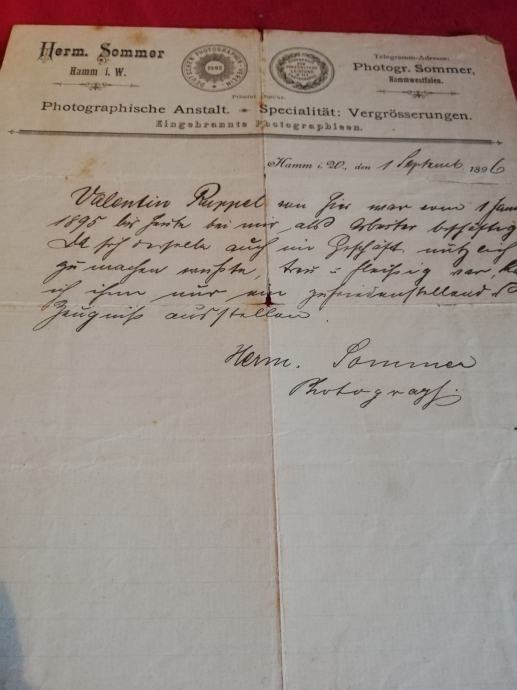 Herm. Sommer
Hamm i. W.
DEUTSCHER PHOTOGRAPHEN-VEREIN
Telegramm-Adresse:
Photogr. Sommer,
Hammwestfalen.
Photographische Anstalt. Specialität: Vergrösserungen.
Eingebrannte Photographieen.
Hamm i. W., den 1 September 1896
Valentin Ruppel von hier war vom 1 Janu
1895 bis heute bei mir als Arbeiter beschäftig
Da sich derselbe auch im Geschäft nützlich
zu machen wußte, treu u. fleißig war, ka
ich ihm nur ein zufriedenstellend
Zeugniß ausstellen.
Herm. Sommer
Photograph.